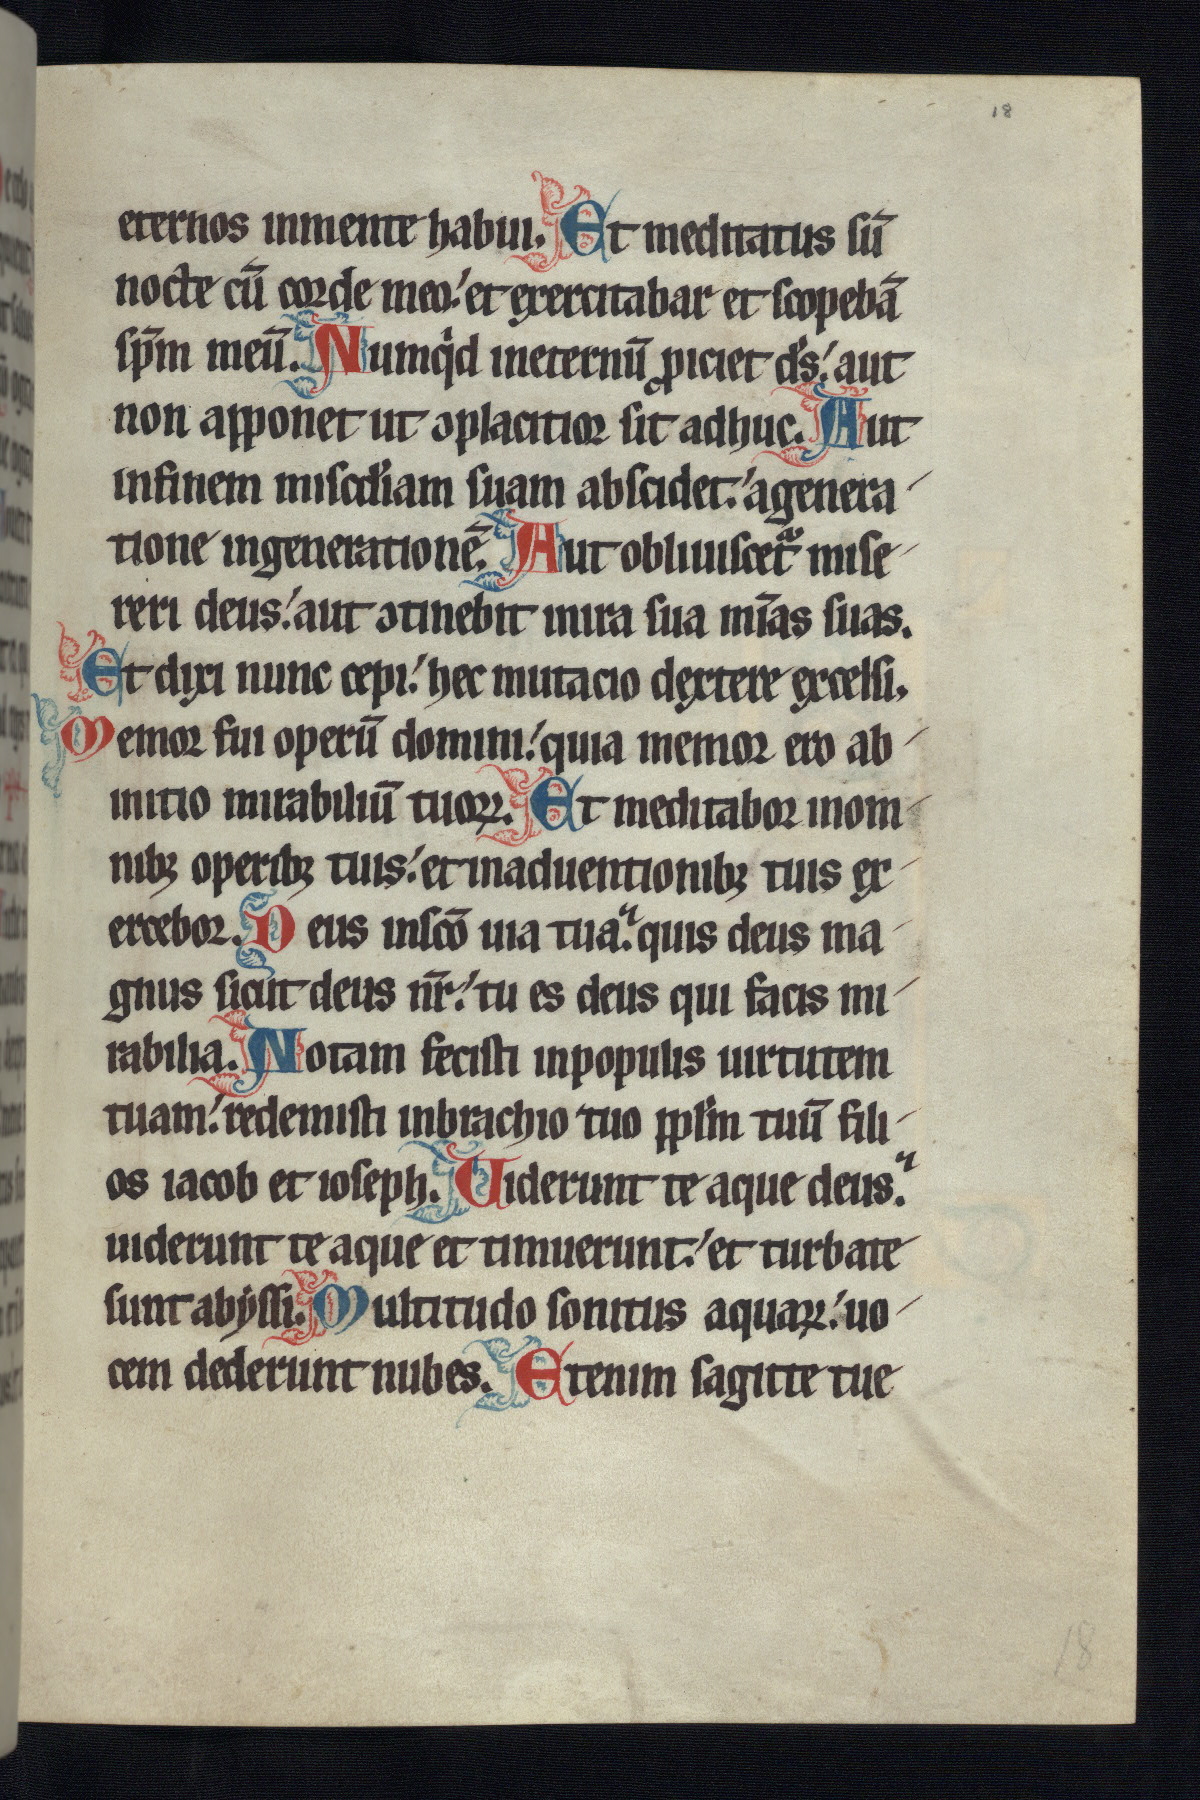 18
eternos inmente habui. Et meditatus sū
nocte cū corde meo: et exercitabar et scopebā
sp̄m meū. Numqͥd ineternū ꝓiciet dꝰs: aut
non apponet ut ɔplacitior sit adhuc. Aut
infinem miscd̓iam suam abscidet: agenera
tione ingenerationē. Aut obliuiscetᷓ mise
reri deus: aut ɔtinebit inira sua mīas suas.
Et dixi nunc cepi: hec mutacio dextere excelsi.
Memor fui operū domini: quia memor ero ab
initio mirabiliū tuoꝝ. Et meditabor inom
nibꝫ operibꝫ tuis: et inaduentionibꝫ tuis ex
ercebor. Deus inscō uia tua: quis deus ma
gnus sicut deus nr̄: tu es deus qui facis mi
rabilia. Notam fecisti inpopulis uirtutem
tuam: redemisti inbrachio tuo ppl̓m tuū fili
os iacob et ioseph. Uiderunt te aque deus.
uiderunt te aque et timuerunt: et turbate
sunt abyssi. Multitudo sonitus aquaꝝ: uo
cem dederunt nubes. Etenim sagitte tue
18